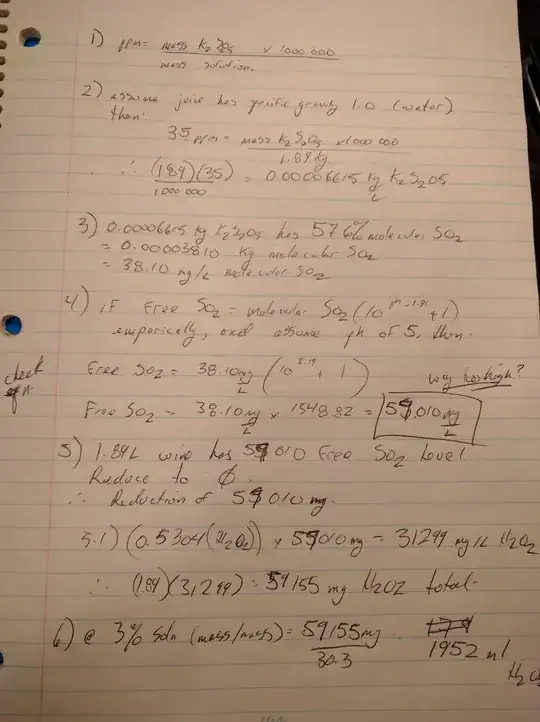 1) ppm = mass K2S2O5 x 1000 000
mass solution.
2) assume juice has specific gravity 1.0 (water)
then:
35 ppm = mass K2S2O5 x1000 000
1.89 kg
∴ (1.89)(35) = 0.00006615 kg K2S2O5
1000 000 L
3) 0.00006615 kg K2S2O5 has 57.6% molecular SO2
= 0.00003810 kg molecular SO2
= 38.10 mg/L molecular SO2
4) if Free SO2 = molecular SO2 (10^pH-1.81 + 1)
emperically, and assume pH of 5, then.
check
Free SO2 = 38.10 mg/L (10^3.19 + 1) way too high?
Free SO2 = 38.10 mg/L x 1548.82 = 59,010 mg/L
5) 1.89L wine has 59010 Free SO2 level.
Reduce to 0.
∴ Reduction of 59010 mg.
5.1) (0.5304(H2O2)) x 59010 mg = 31299 mg/L H2O2
∴ (1.89)(31,299) = 59155 mg H2O2 total.
6) @ 3% soln (mass/mass) = 59155mg
30.3
1952 ml
H2O2